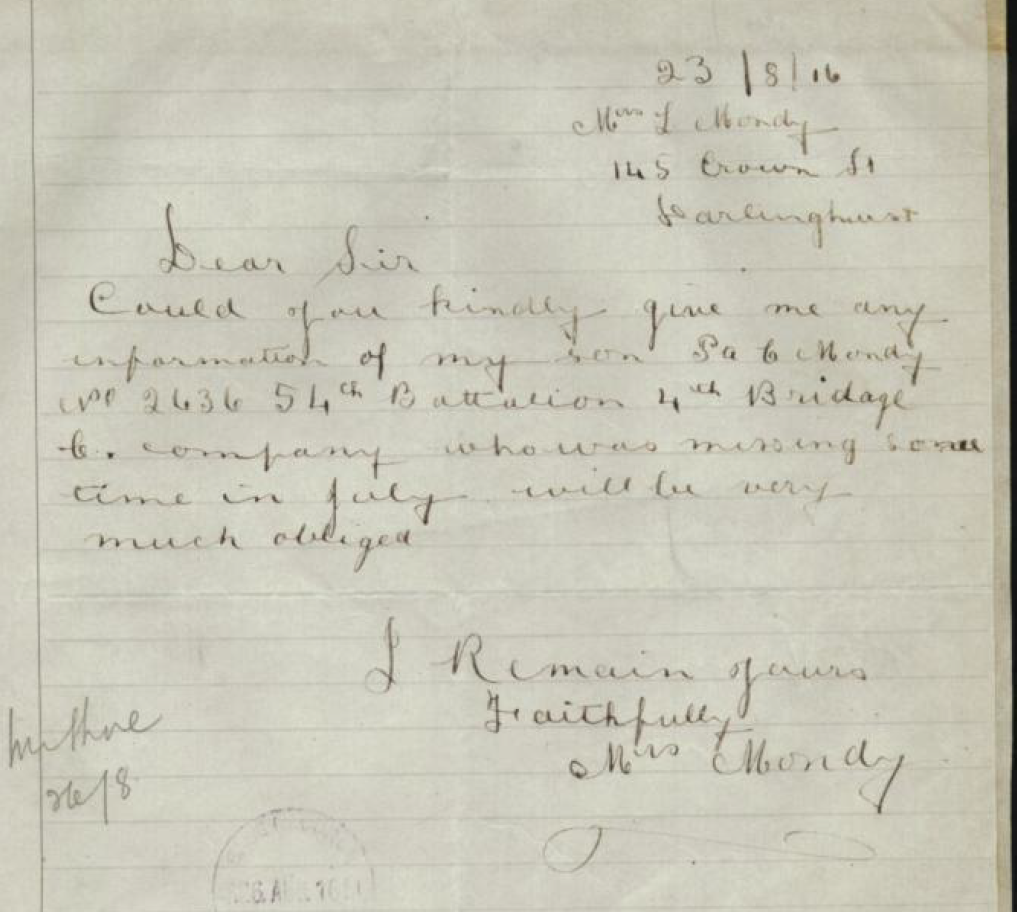 23/8/16
Mrs L Mondy
145 Crown St
Darlinghurst
Dear Sir
Could you kindly give me any
information of my son Pa C Mondy
No 2636 54th Battalion 4th Bridage
C. company who was missing some
time in July will be very
much obliged
I Remain yours
Faithfully
Mrs Mondy
26/8
26 AUG 1916